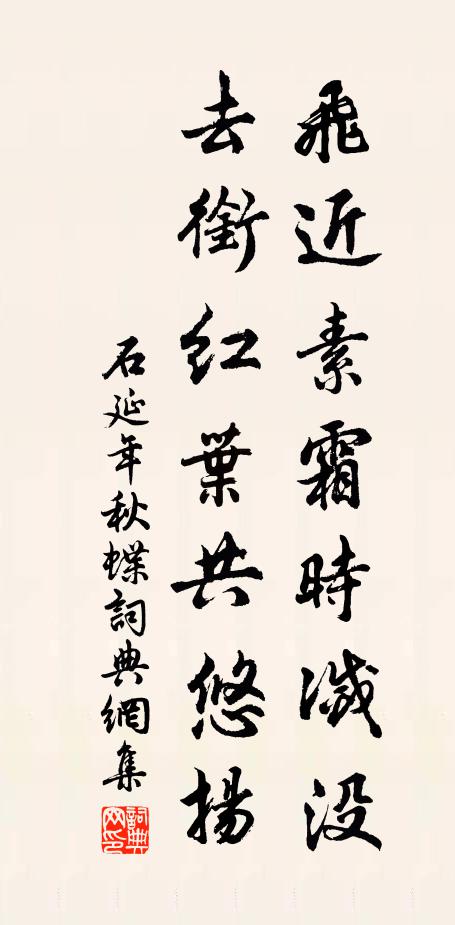 飛近素霜時滅没
去銜紅葉共悠揚
石延年秋蝶詞典網集
詞典网印